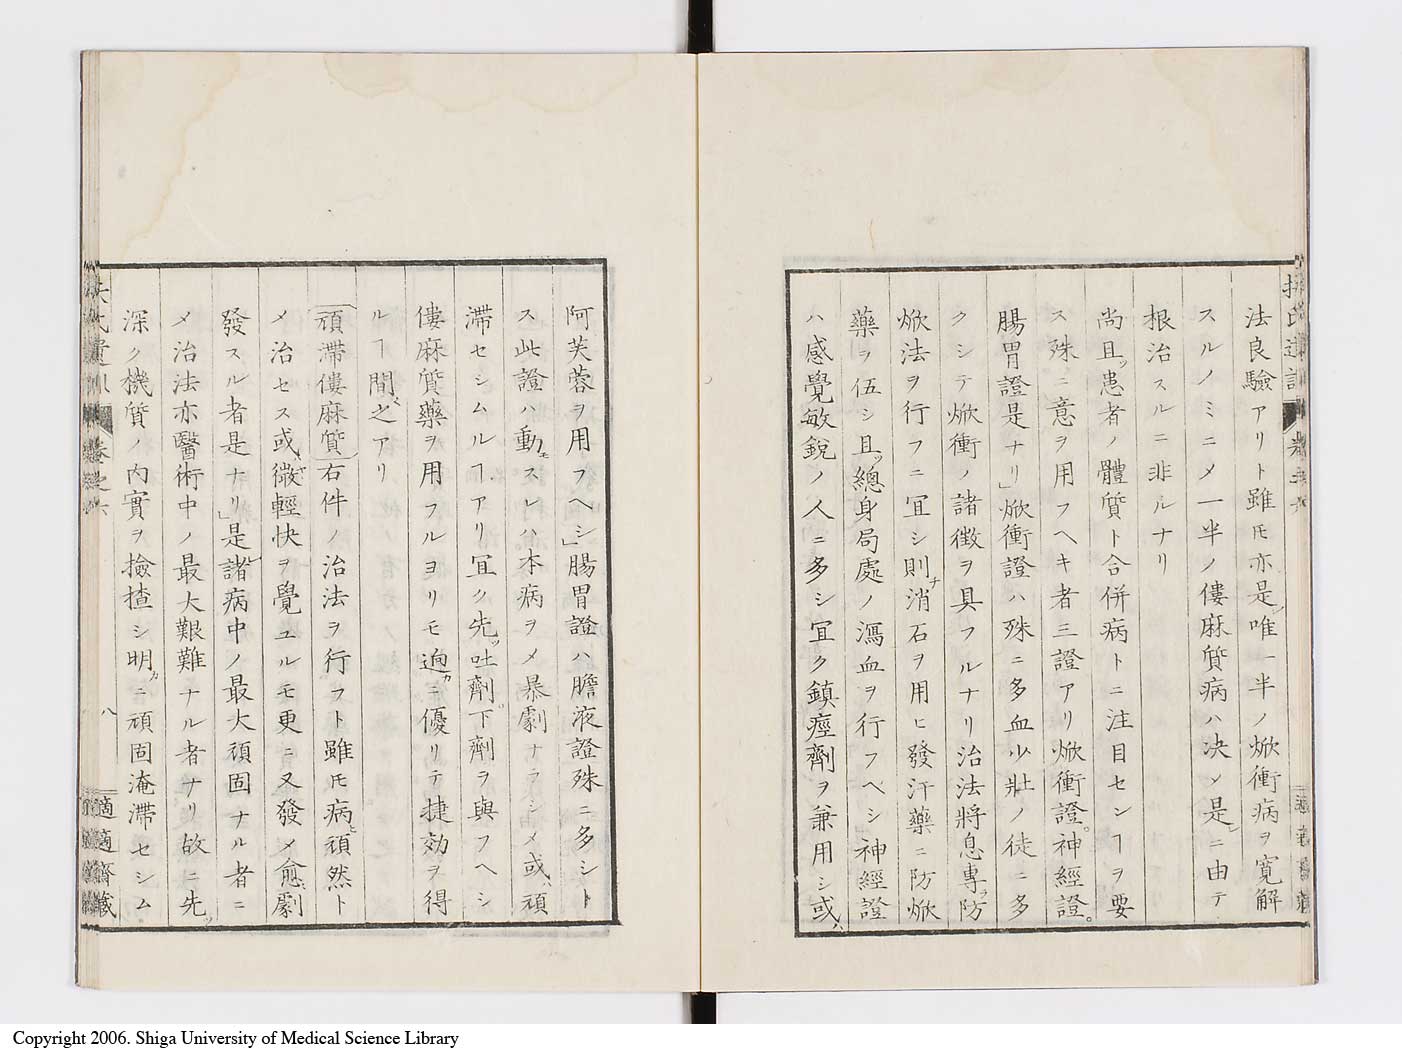 法良驗アリト雖𪜈亦是レ唯一半ノ焮衝病ヲ寛解
スルノミニ〆一半ノ僂麻質病ハ决ノ是ニ由テ
根治スルニ非ルナリ
尚且ツ患者ノ體質ト合併病トニ注目センヿヲ要
ス殊ニ意ヲ用フヘキ者三證アリ焮衝證。神經證。
腸胃證是ナリ」焮衝證ハ殊ニ多血少壯ノ徒ニ多
クシテ焮衝ノ諸徴ヲ具フルナリ治法將息專ラ防
焮法ヲ行フニ宜シ則チ消石ヲ用ヒ發汗藥ニ防焮
藥ヲ伍シ且ツ總身局處ノ瀉血ヲ行フヘシ神經證
ハ感覺敏銳ノ人ニ多シ宜ク鎮痙劑ヲ兼用シ或ハ
阿芙蓉ヲ用フヘシ」腸胃證ハ膽液證殊ニ多シト
ス此證ハ動モスレハ本病ヲ〆暴劇ナラシメ或ハ頑
滯セシムルヿアリ宜ク先ツ吐劑下劑ヲ與フヘシ
僂麻質藥ヲ用フルヨリモ逈カニ優リテ捷効ヲ得
ルヿ間之アリ
頑滯僂麻質 右件ノ治法ヲ行フト雖𪜈病ヒ頑然ト
〆治セス或ハ微輕快ヲ覺ユルモ更ニ又發〆愈劇
發スル者是ナリ」是レ諸病中ノ最大頑固ナル者ニ
〆治法亦醫術中ノ最大艱難ナル者ナリ故ニ先ツ
深ク機質ノ內實ヲ撿揸シ明カニ頑固淹滯セシム
扶氏遺訓 卷之六 八 適適齋藏
Copyright 2006. Shiga University of Medical Science Library